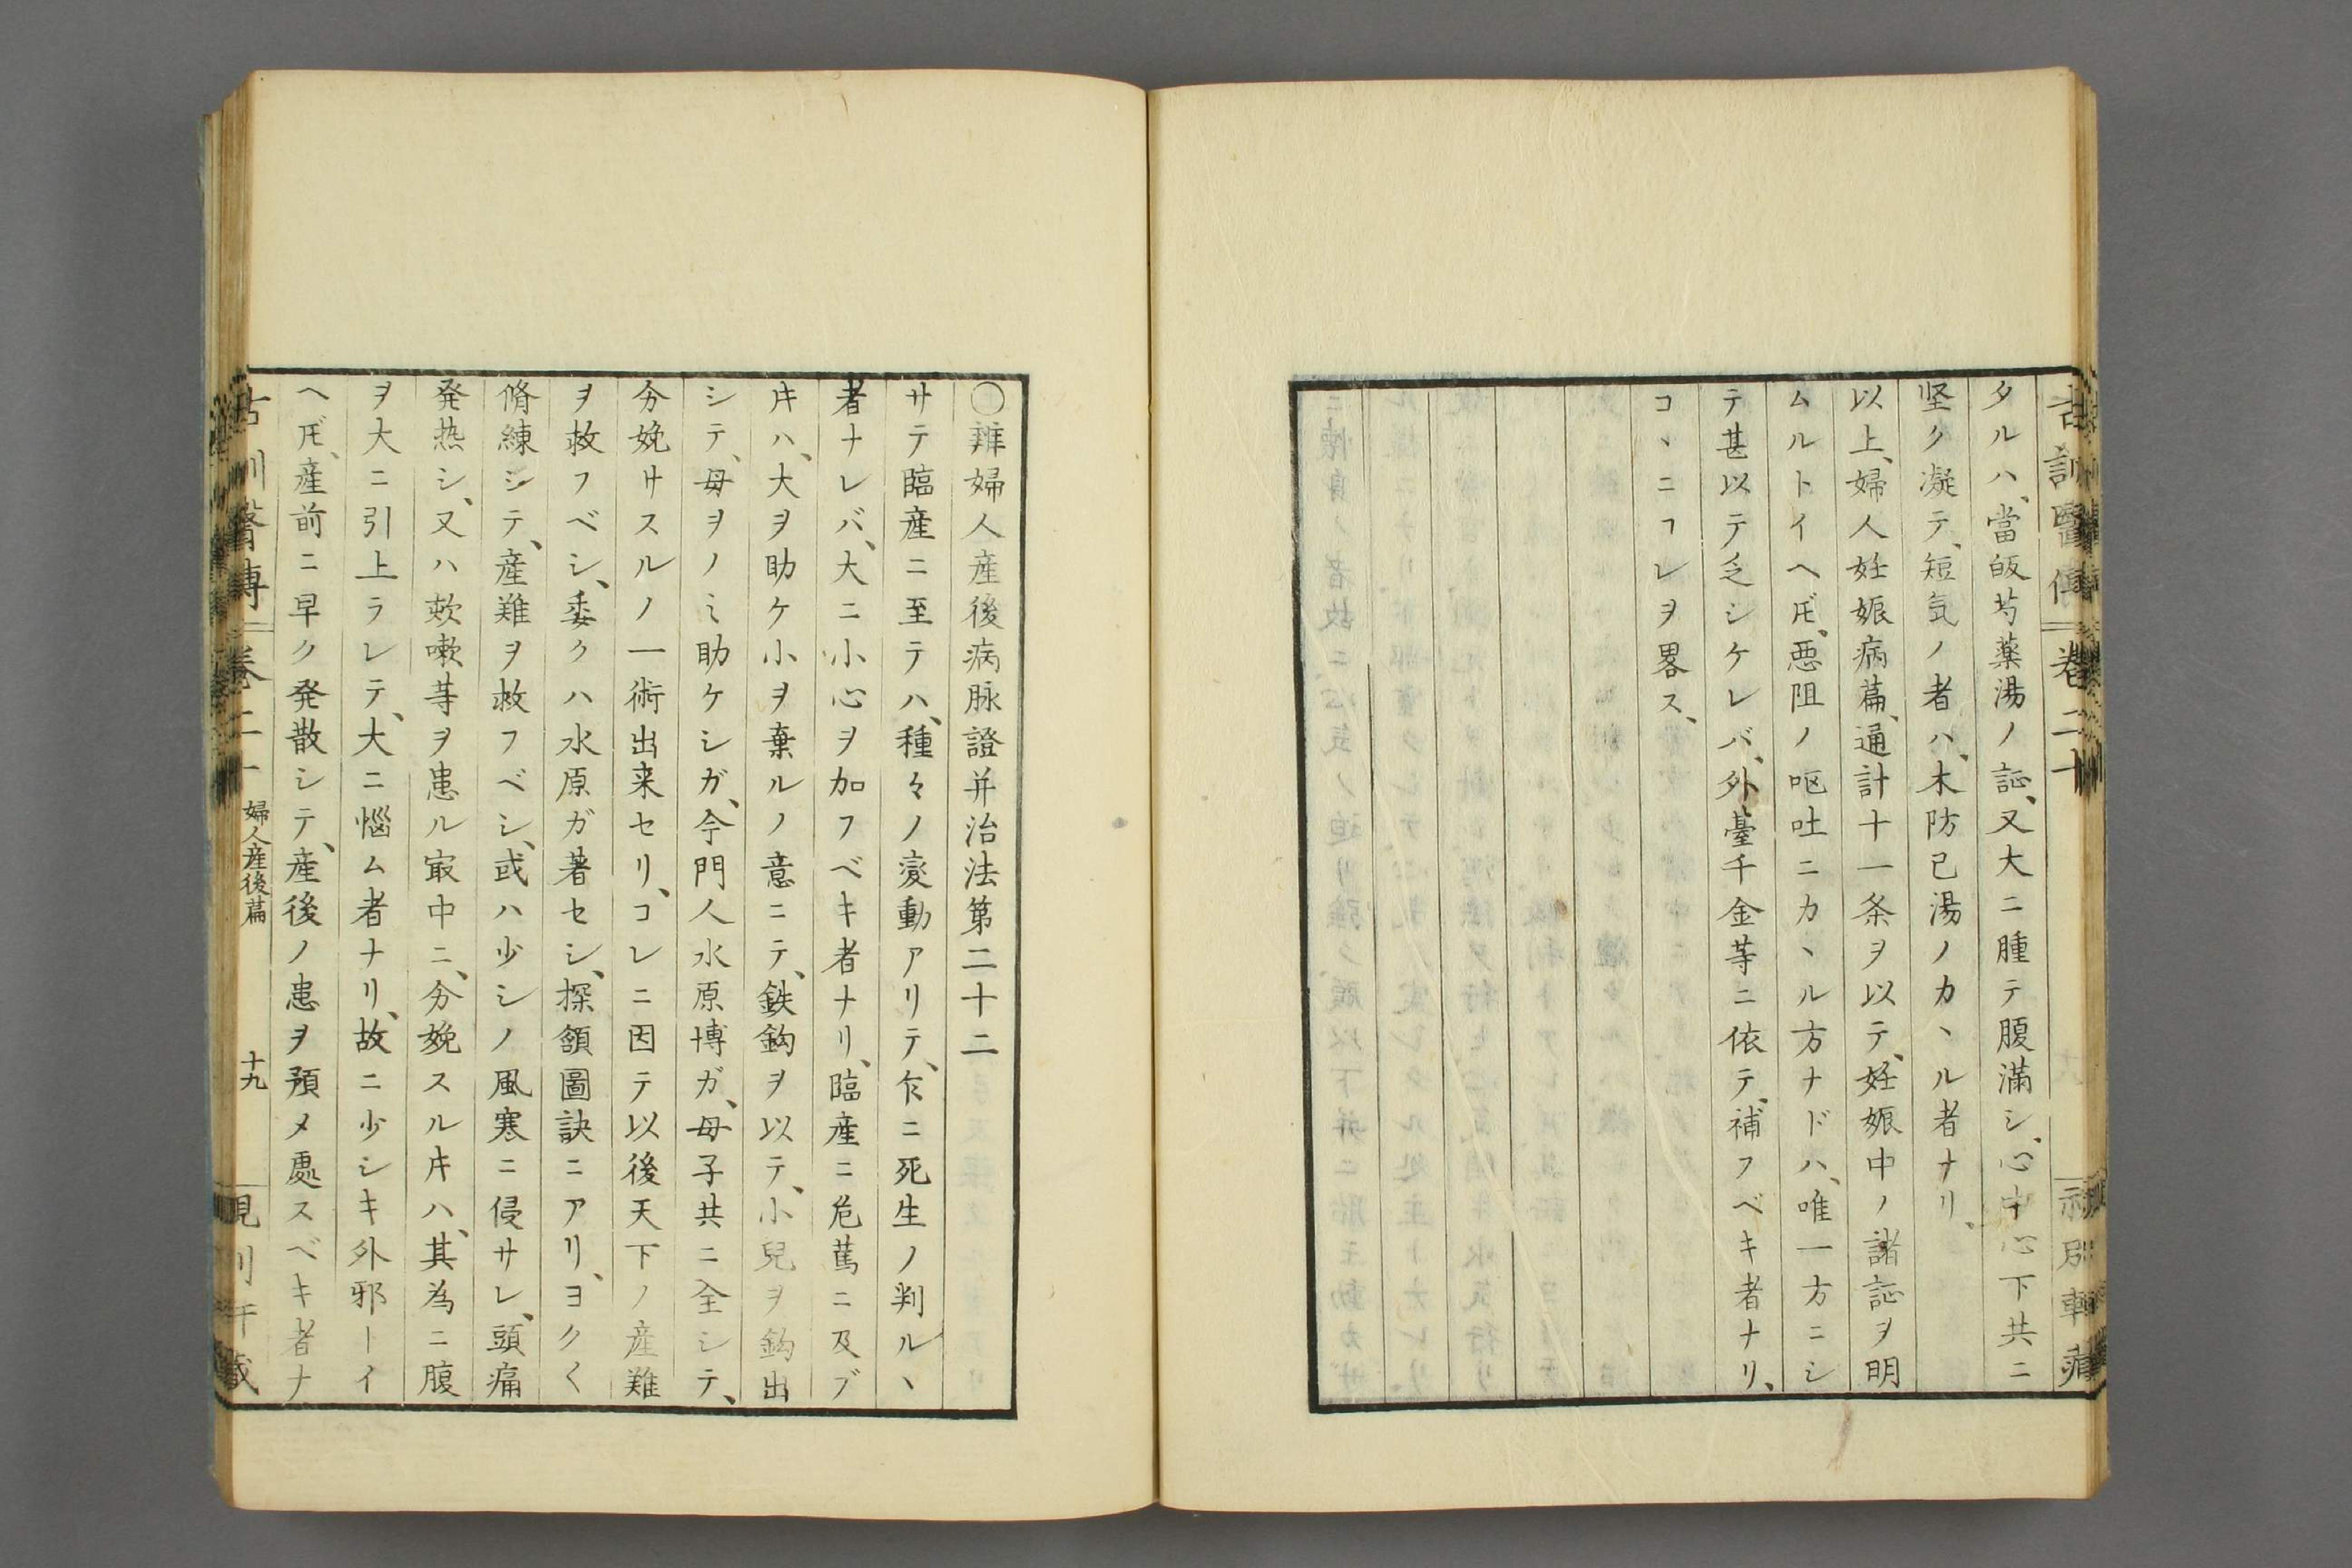 古訓醫傳 卷二十
タルハ、當皈芍薬湯ノ証、又大ニ腫テ腹滿シ、心中心下共ニ
坚ク凝テ、短気ノ者ハ、木防已湯ノカヽル者ナリ、
以上、婦人妊娠病篇、通計十一条ヲ以テ、妊娠中ノ諸証ヲ明
ムルトイヘ𪜈、悪阻ノ呕吐ニカヽル方ナドハ、唯一方ニシ
テ甚以テ乏シケレバ、外臺千金䓁ニ依テ、補フベキ者ナリ、
コヽニコレヲ畧ス、
〇辨婦人産後病脉證并治法第二十二
サテ臨産ニ至テハ、種々ノ変動アリテ、乍ニ死生ノ判ルヽ
者ナレバ、大ニ小心ヲ加フベキ者ナリ、臨産ニ危篤ニ及ブ
𪜈ハ、大ヲ助ケ小ヲ棄ルノ意ニテ、鉄鈎ヲ以テ、小兒ヲ鈎出
シテ、母ヲノミ助ケシガ、今門人水原博ガ、母子共ニ全シテ、
分娩サスルノ一術出来セリ、コレニ因テ以後天下ノ産難
ヲ救フベシ、委クハ水原ガ著セシ、探頷圖訣ニアリ、ヨクく
脩練シテ、産難ヲ救フベシ、或ハ少シノ風寒ニ侵サレ、頭痛
発热シ、又ハ欬嗽䓁ヲ患ル㝡中ニ、分娩スル𪜈ハ、其為ニ腹
ヲ大ニ引上ラレテ、大ニ惱ム者ナリ、故ニ少シキ外邪トイ
ヘ𪜈、産前ニ早ク発散シテ、産後ノ患ヲ預メ處スベキ者ナ
古訓醫傳 卷二十 婦人産後篇 十九